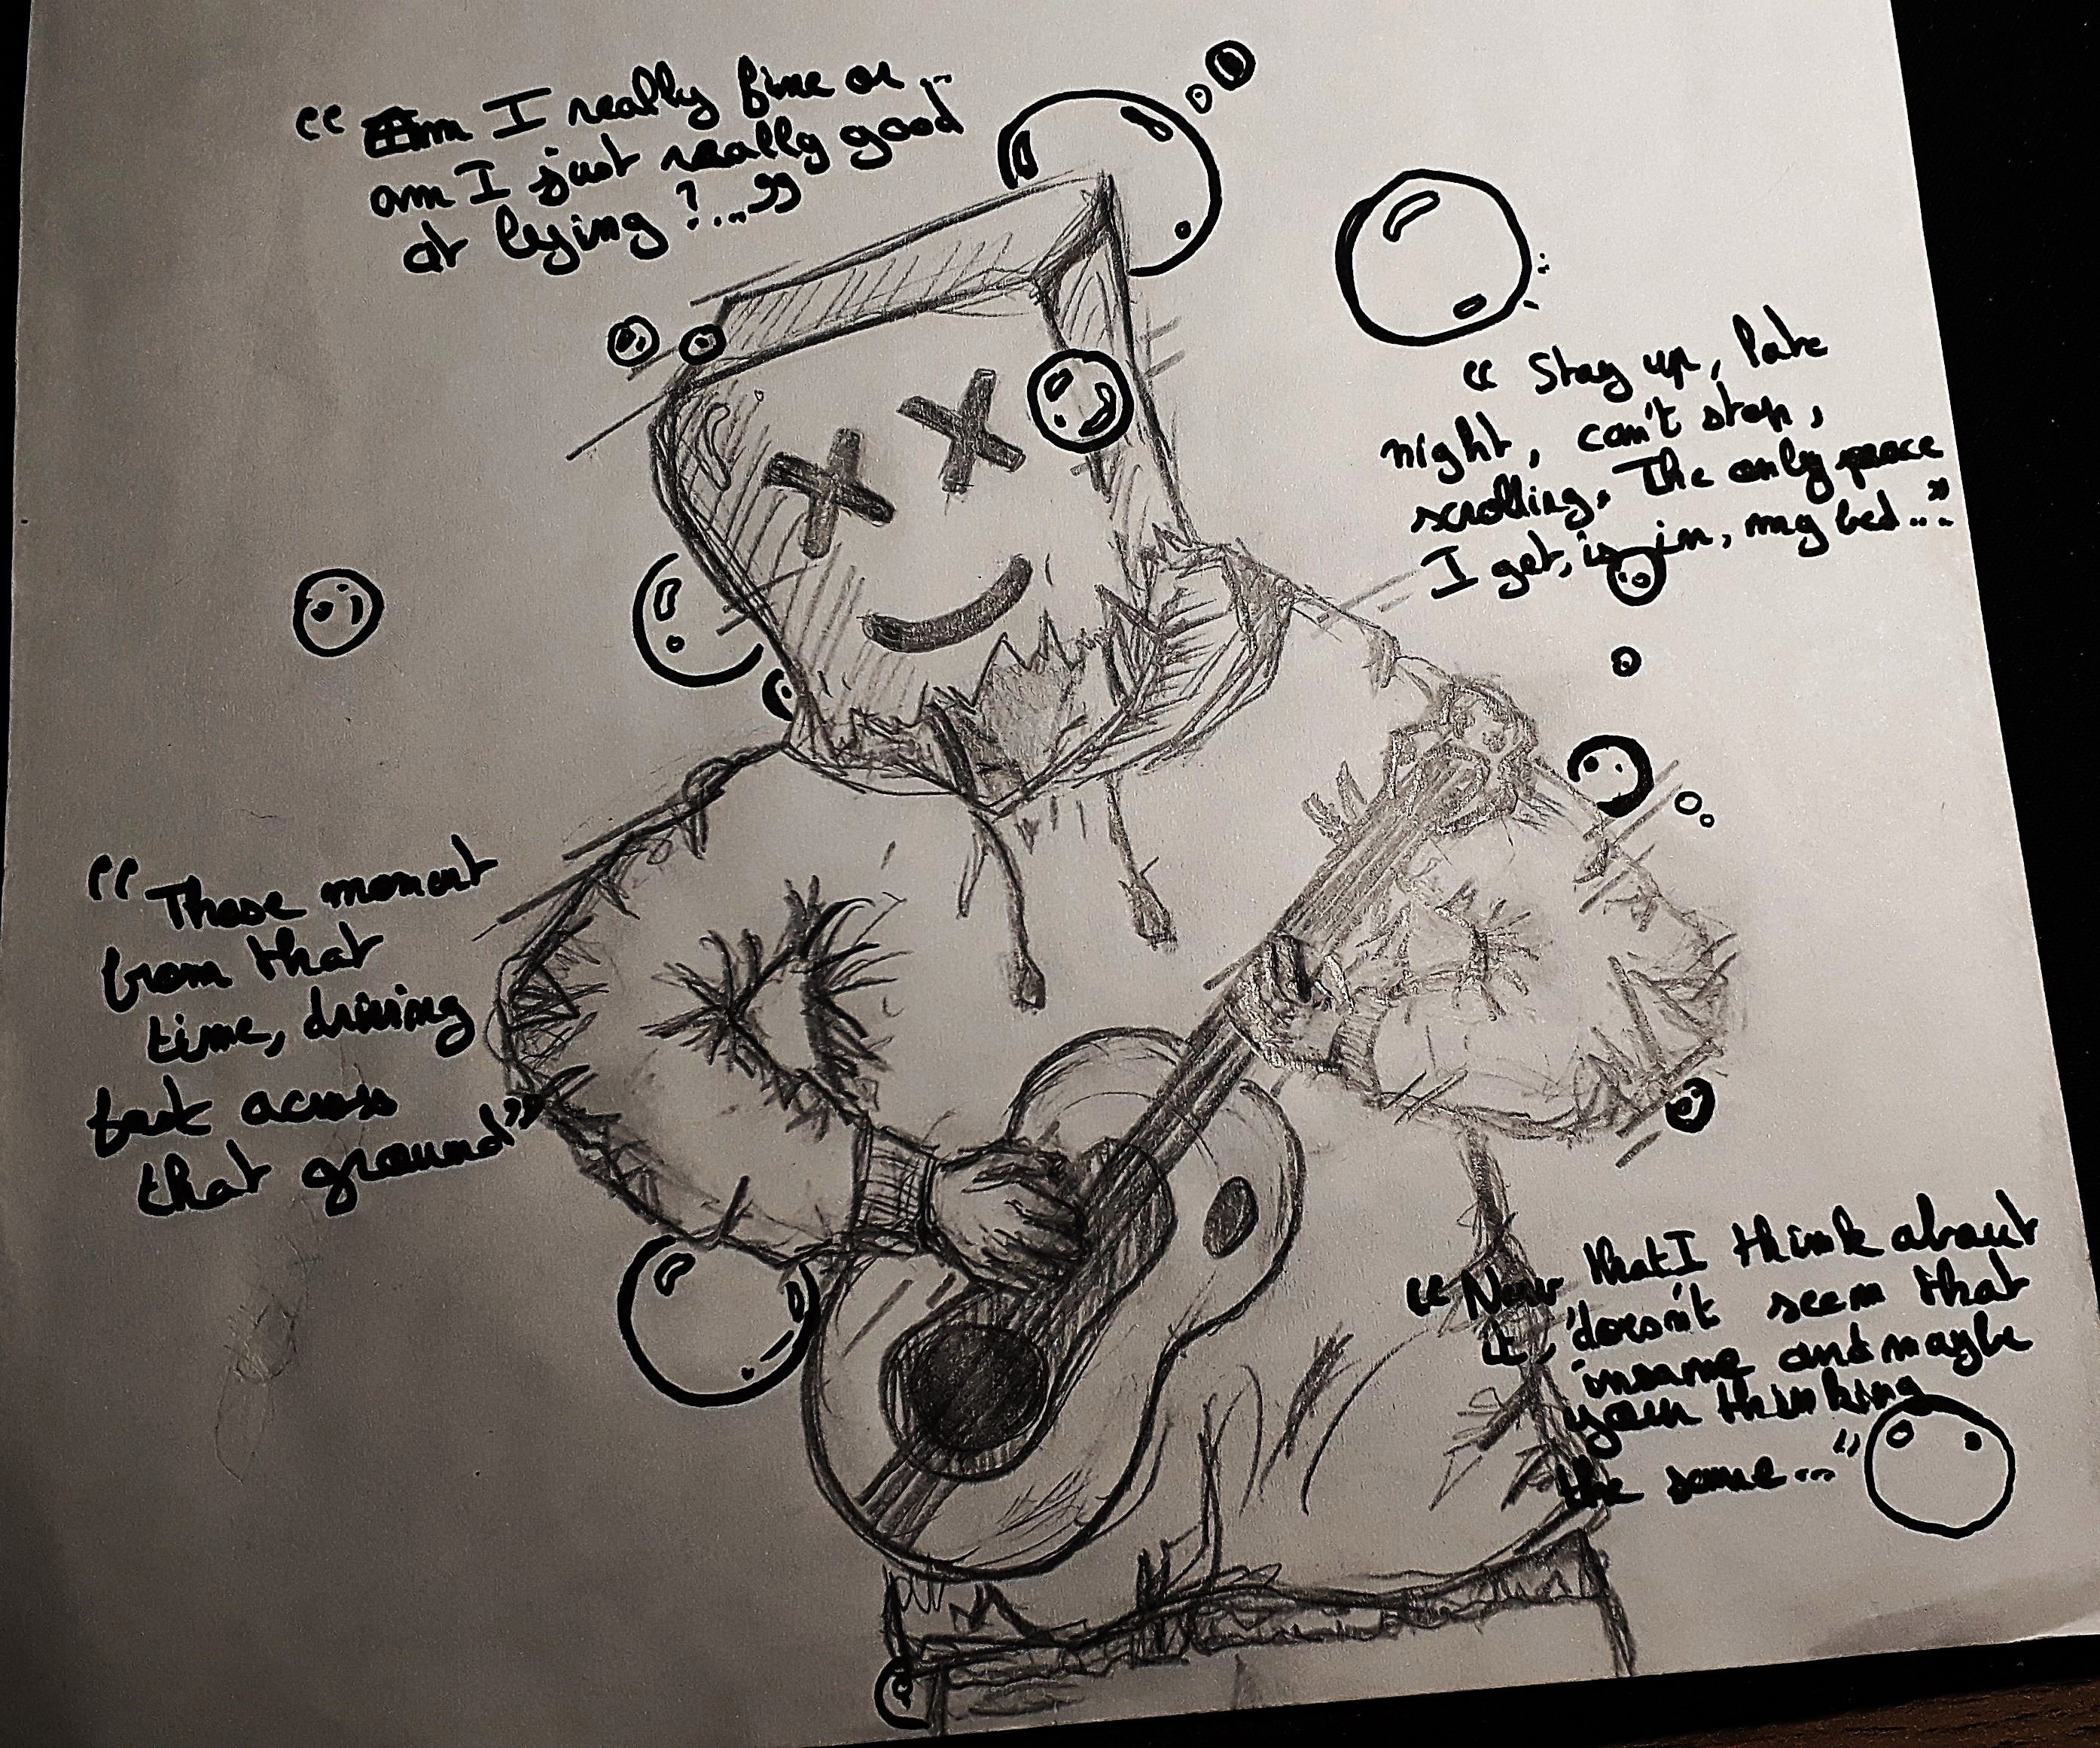 “ Am I really fine or...
am I just really good
at lying ?...”
“ Stay up, late
night, can't stop,
scrolling. The only peace
I get, is in, my bed...”
“ Those moment
from that
time, driving
fast across
that ground”
“ Now that I think about
it, doesn't seem that
insane and maybe
your thinking
the same...”